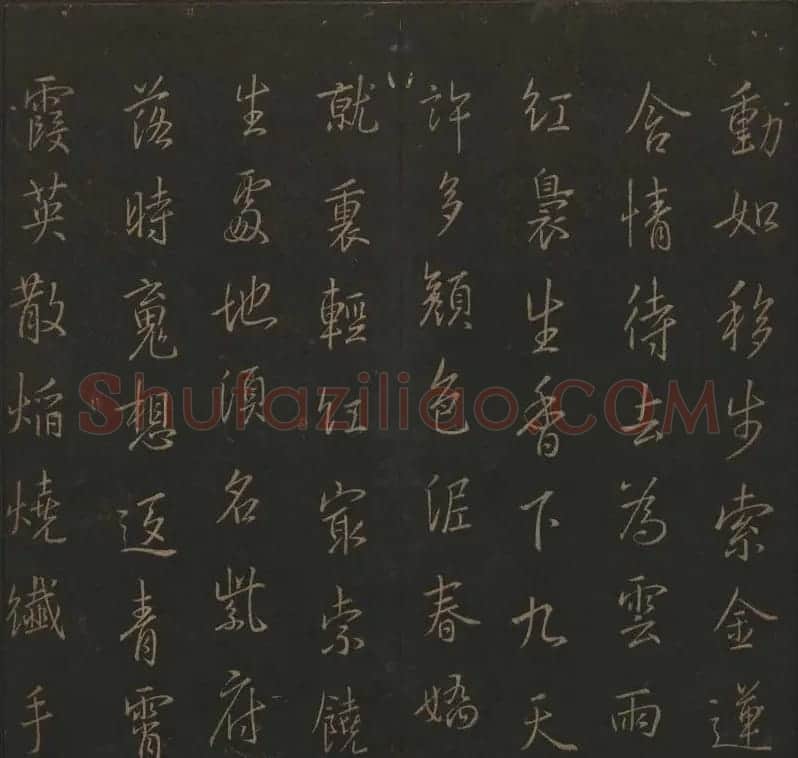 動如移步索金蓮
含情待去為雲雨
紅裊生香下九天
許多顏色泥春嬌
就裏輕紅㝡索饒
生處地須名紫府
落時䰟想返青霄
霞英散焰燒纖手
Shufaziliao.COM